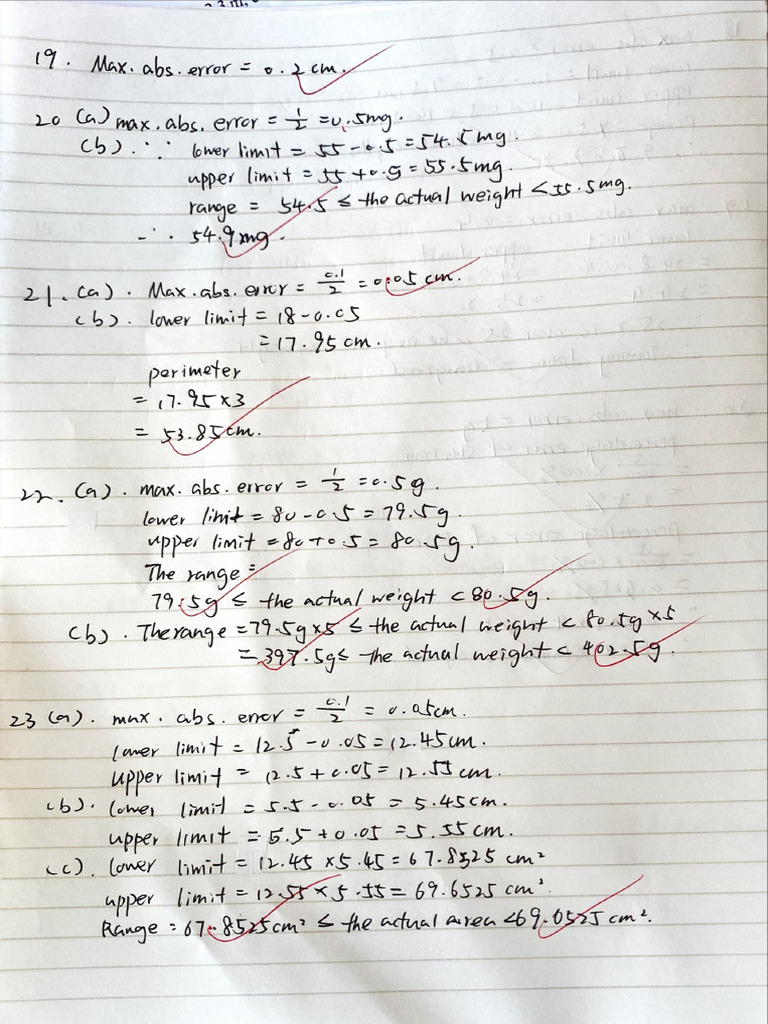 19. Max. abs. error = 0.2cm.
20 (a) max. abs. error = 1/2 = 0.5mg.
(b). ∵ lower limit = 55 - 0.5 = 54.5mg.
upper limit = 55 + 0.5 = 55.5mg.
range = 54.5 ≤ the actual weight < 55.5mg.
∴ 54.9mg.
21. (a). Max. abs. error = 0.1/2 = 0.05 cm.
(b). lower limit = 18 - 0.05
= 17.95 cm.
perimeter
= 17.95 × 3
= 53.85cm.
22. (a). max. abs. error = 1/2 = 0.5g.
lower limit = 80 - 0.5 = 79.5g.
upper limit = 80 + 0.5 = 80.5g.
The range =
79.5g ≤ the actual weight < 80.5g.
(b). The range = 79.5g×5 ≤ the actual weight < 80.5g×5
= 397.5g ≤ the actual weight < 402.5g.
23 (a). max. abs. error = 0.1/2 = 0.05cm.
lower limit = 12.5 - 0.05 = 12.45cm.
upper limit = 12.5 + 0.05 = 12.55cm.
(b). lower limit = 5.5 - 0.05 = 5.45cm.
upper limit = 5.5 + 0.05 = 5.55cm.
(c). lower limit = 12.45 × 5.45 = 67.8525 cm²
upper limit = 12.55 × 5.55 = 69.6525 cm².
Range = 67.8525cm² ≤ the actual area < 69.6525 cm².